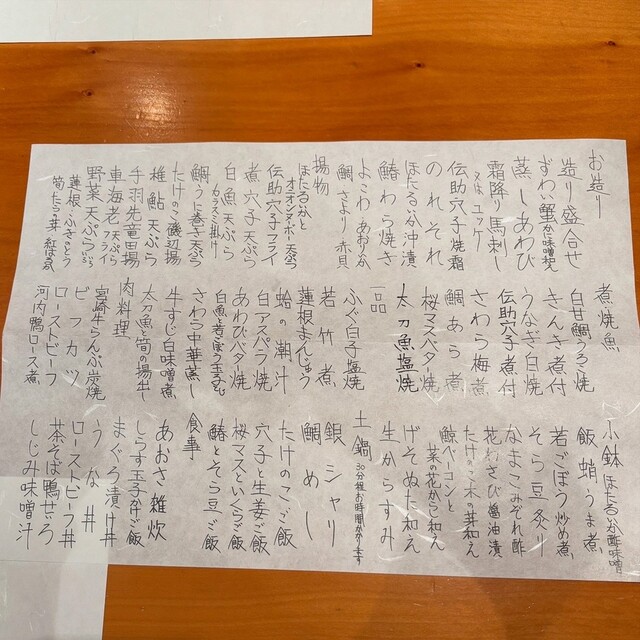 お造り
造り盛合せ
ずわい蟹かに味噌和え
蒸しあわび
霜降り馬刺し
又は、ユッケ
のれそれ
伝助穴子焼霜
ほたるいか沖漬
鰆わら焼き
よこわ あおりいか
鯛 さより 赤貝
揚物
ほたるいかと
オニオンヌーボー天ぷら
伝助穴子フライ
煮穴子天ぷら
白魚天ぷら
カラスミ掛け
鯛うに巻き天ぷら
たけのこ磯辺揚
稚鮎天ぷら
手羽先竜田揚
車海老 天ぷら フライ
野菜天ぷらいろいろ
蓮根・ふきのとう
筍 たらの芽
煮焼魚
白甘鯛うろこ焼
きんき煮付
うなぎ白焼
伝助穴子煮付
さわら梅煮
鯛あら煮
桜マスバター焼
太刀魚塩焼
一品
ふぐ白子塩焼
若竹煮
蓮根まんじゅう
蛤の潮汁
白アスパラ焼
あわびバタ焼
白魚と春ごぼう玉子とじ
さわら中華蒸し
牛すじ白味噌煮
太刀魚と筍の揚出し
肉料理
宮崎牛らんぷ炭焼
ビフカツ
ローストビーフ
河内鴨ロース煮
小鉢
ほたるいか酢味噌
飯蛸うま煮
若ごぼう炒め煮
そら豆炙り
なまこみぞれ酢
花わさび醤油漬
たけのこ木の芽和え
鯨ベーコンと
菜の花からし和え
げそぬた和え
生からすみ
土鍋 30分程お時間かかります
銀シャリ
鯛めし
たけのこご飯
穴子と生姜ご飯
桜マスといくらご飯
鰆とそら豆ご飯
食事
あおさ雑炊
しらす玉子丼ご飯
まぐろ漬け丼
うな丼
ローストビーフ丼
茶そば鴨せいろ
しじみ味噌汁